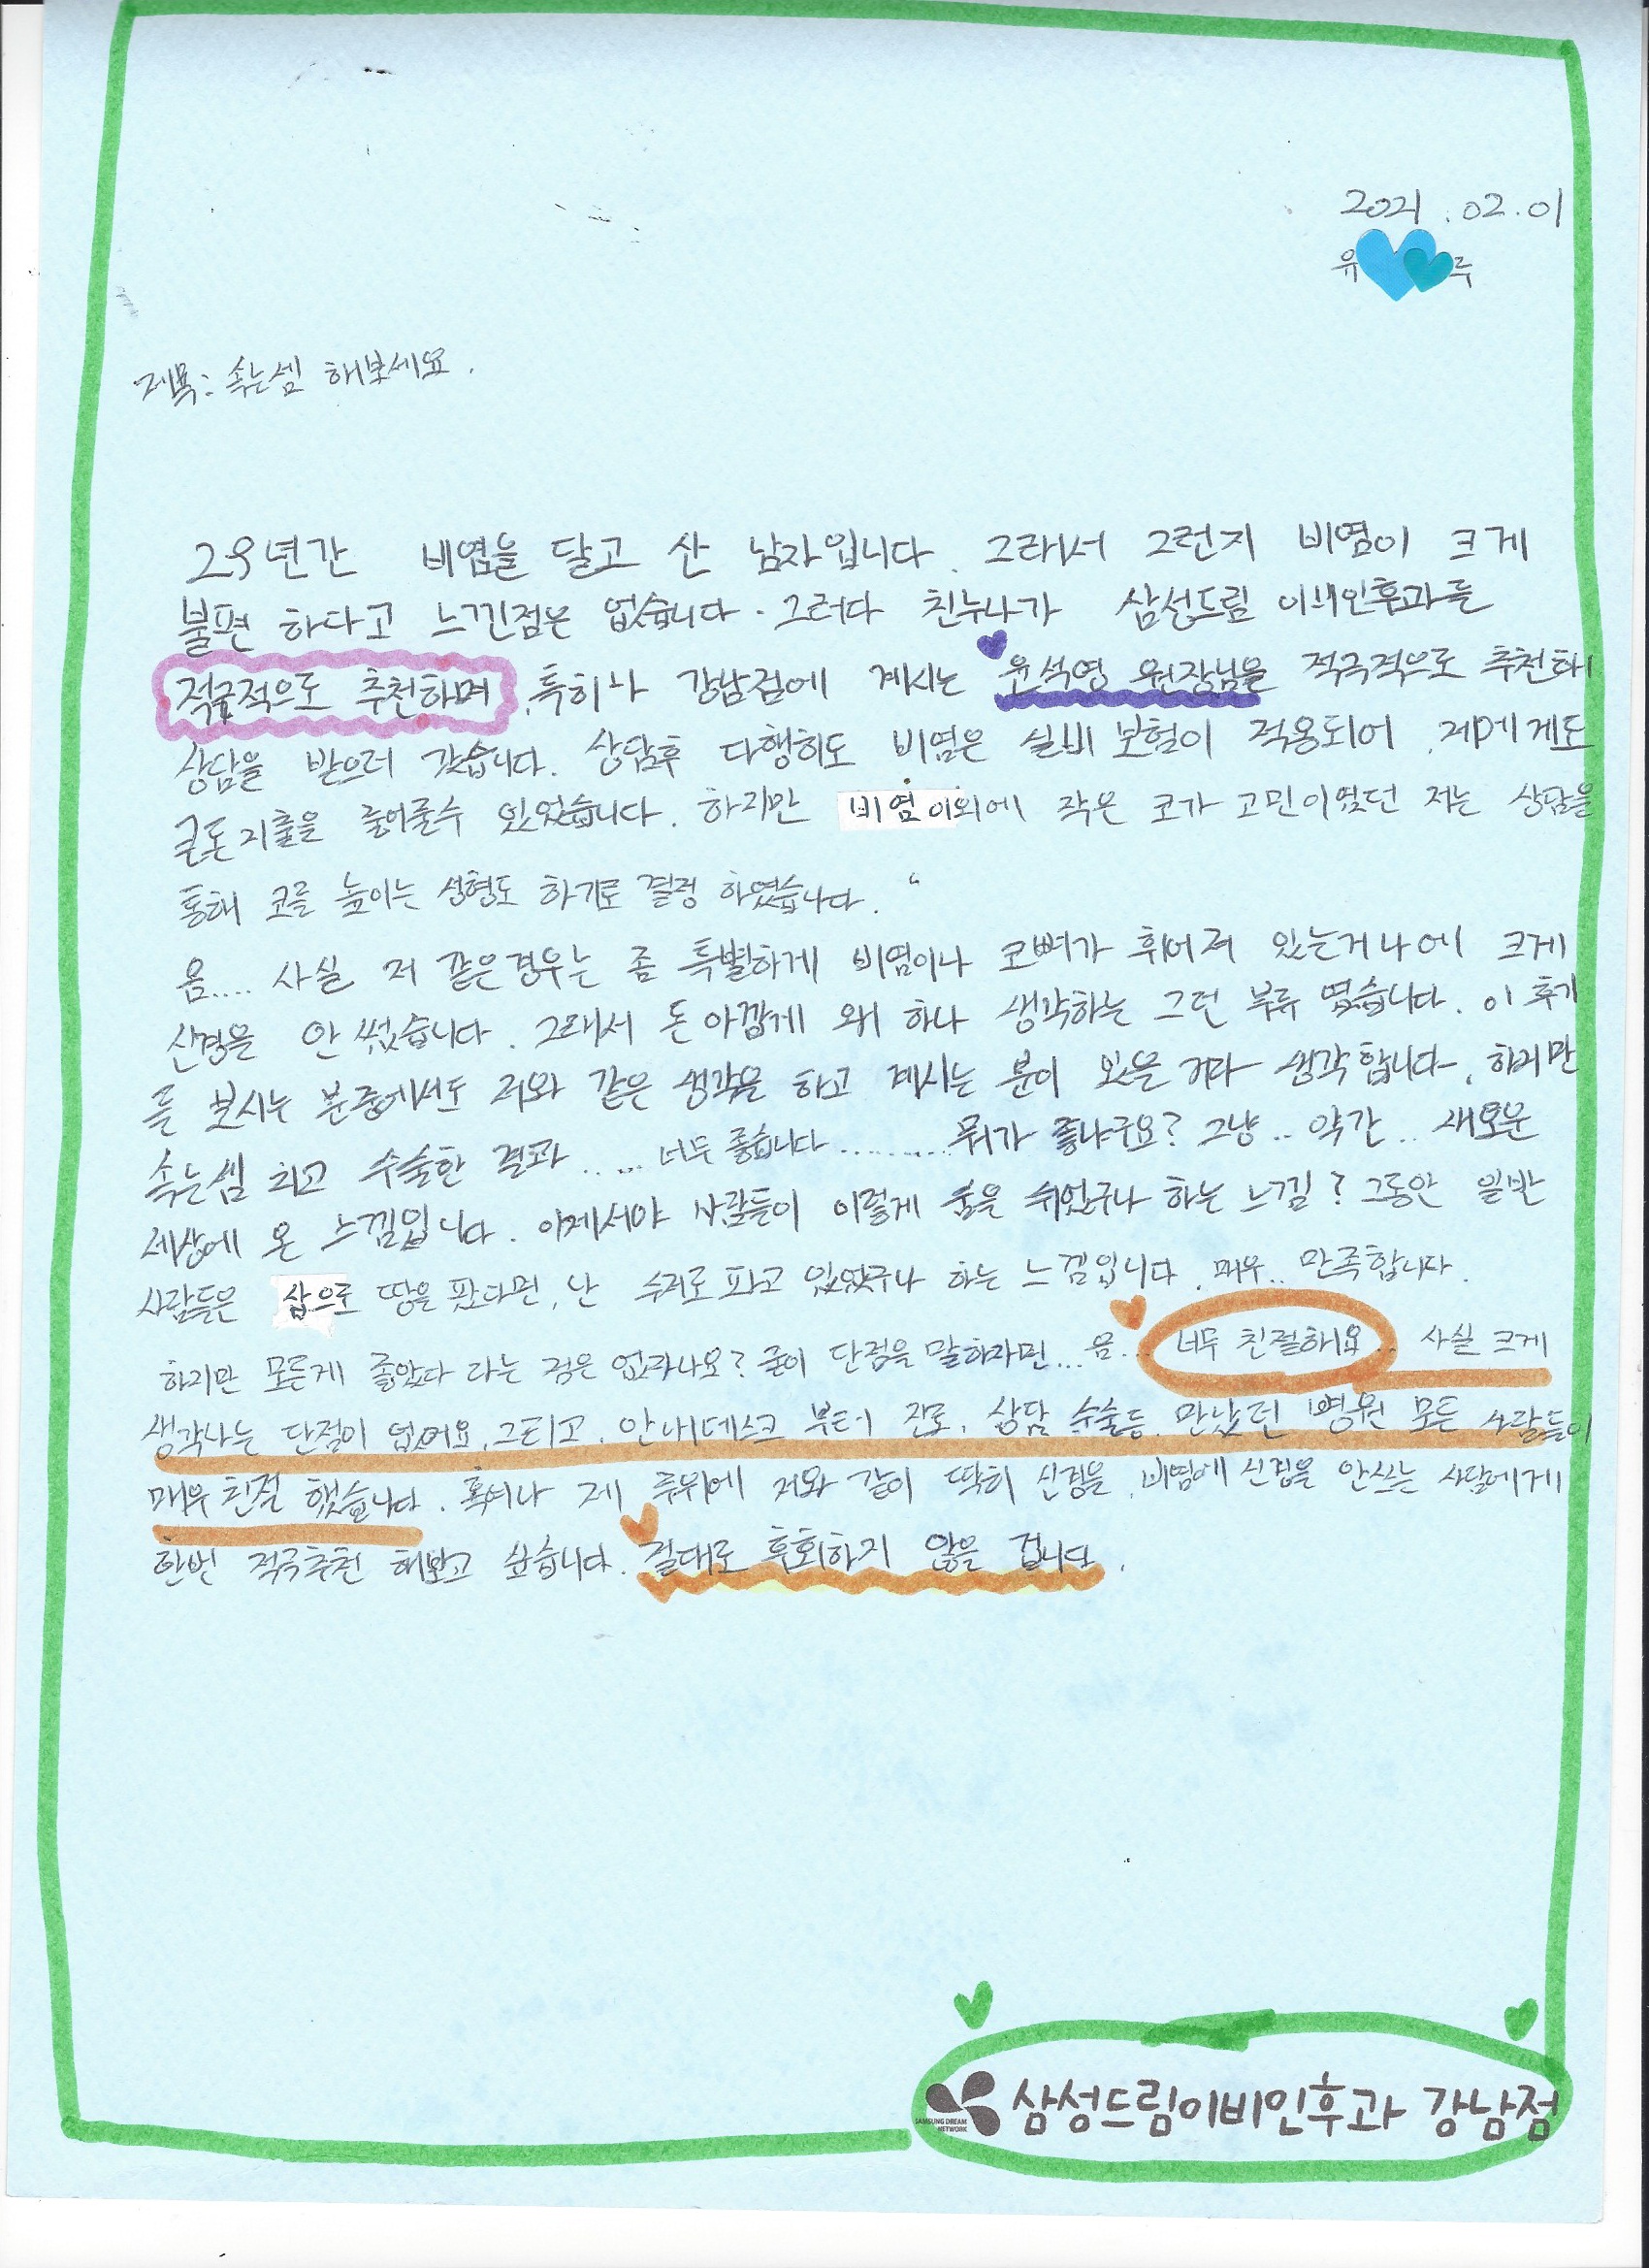 2021.02.01
유 주
제목: 속는셈 해보세요.
29년간 비염을 달고 산 남자입니다. 그래서 그런지 비염이 크게
불편 하다고 느낀점은 없습니다. 그러다 친누나가 삼성드림 이비인후과를
적극적으로 추천하며, 특히나 강남점에 계시는 윤석영 원장님을 적극적으로 추천해
상담을 받으러 갔습니다. 상담후 다행히도 비염은 실비 보험이 적용되어, 제게도
큰돈 지출을 줄여줄수 있었습니다. 하지만 비염 이외에 작은 코가 고민이였던 저는 상담을
통해 코를 높이는 성형도 하기로 결정 하였습니다.
음.... 사실 저 같은경우는 좀 특별하게 비염이나 코뼈가 휘어져 있는거나에 크게
신경을 안 썼습니다. 그래서 돈 아깝게 왜 하나 생각하는 그런 부류 였습니다. 이 후기
를 보시는 분중에서도 저와 같은 생각을 하고 계시는 분이 있을 거라 생각 합니다. 하지만
속는셈 치고 수술한 결과..... 너무 좋습니다......... 뭐가 좋냐구요? 그냥.. 약간.. 새로운
세상에 온 느낌입니다. 이제서야 사람들이 이렇게 숨을 쉬었구나 하는 느낌? 그동안 일반
사람들은 삽으로 땅을 팠다면, 난 수저로 파고 있었구나 하는 느낌입니다. 매우.. 만족합니다.
하지만 모든게 좋았다 라는 점은 없자나요? 굳이 단점을 말하자면... 음... 너무 친절하세요.. 사실 크게
생각나는 단점이 없어요. 그리고, 안내데스크 부터 진료, 상담, 수술등, 만났던 병원 모든 사람들이
매우 친절 했습니다. 혹여나 제 주위에 저와 같이 딱히 신경을, 비염에 신경을 안쓰는 사람에게
한번 적극추천 해보고 싶습니다. 절대로 후회하지 않을 겁니다.
SAMSUNG DREAM NETWORK
삼성드림이비인후과 강남점